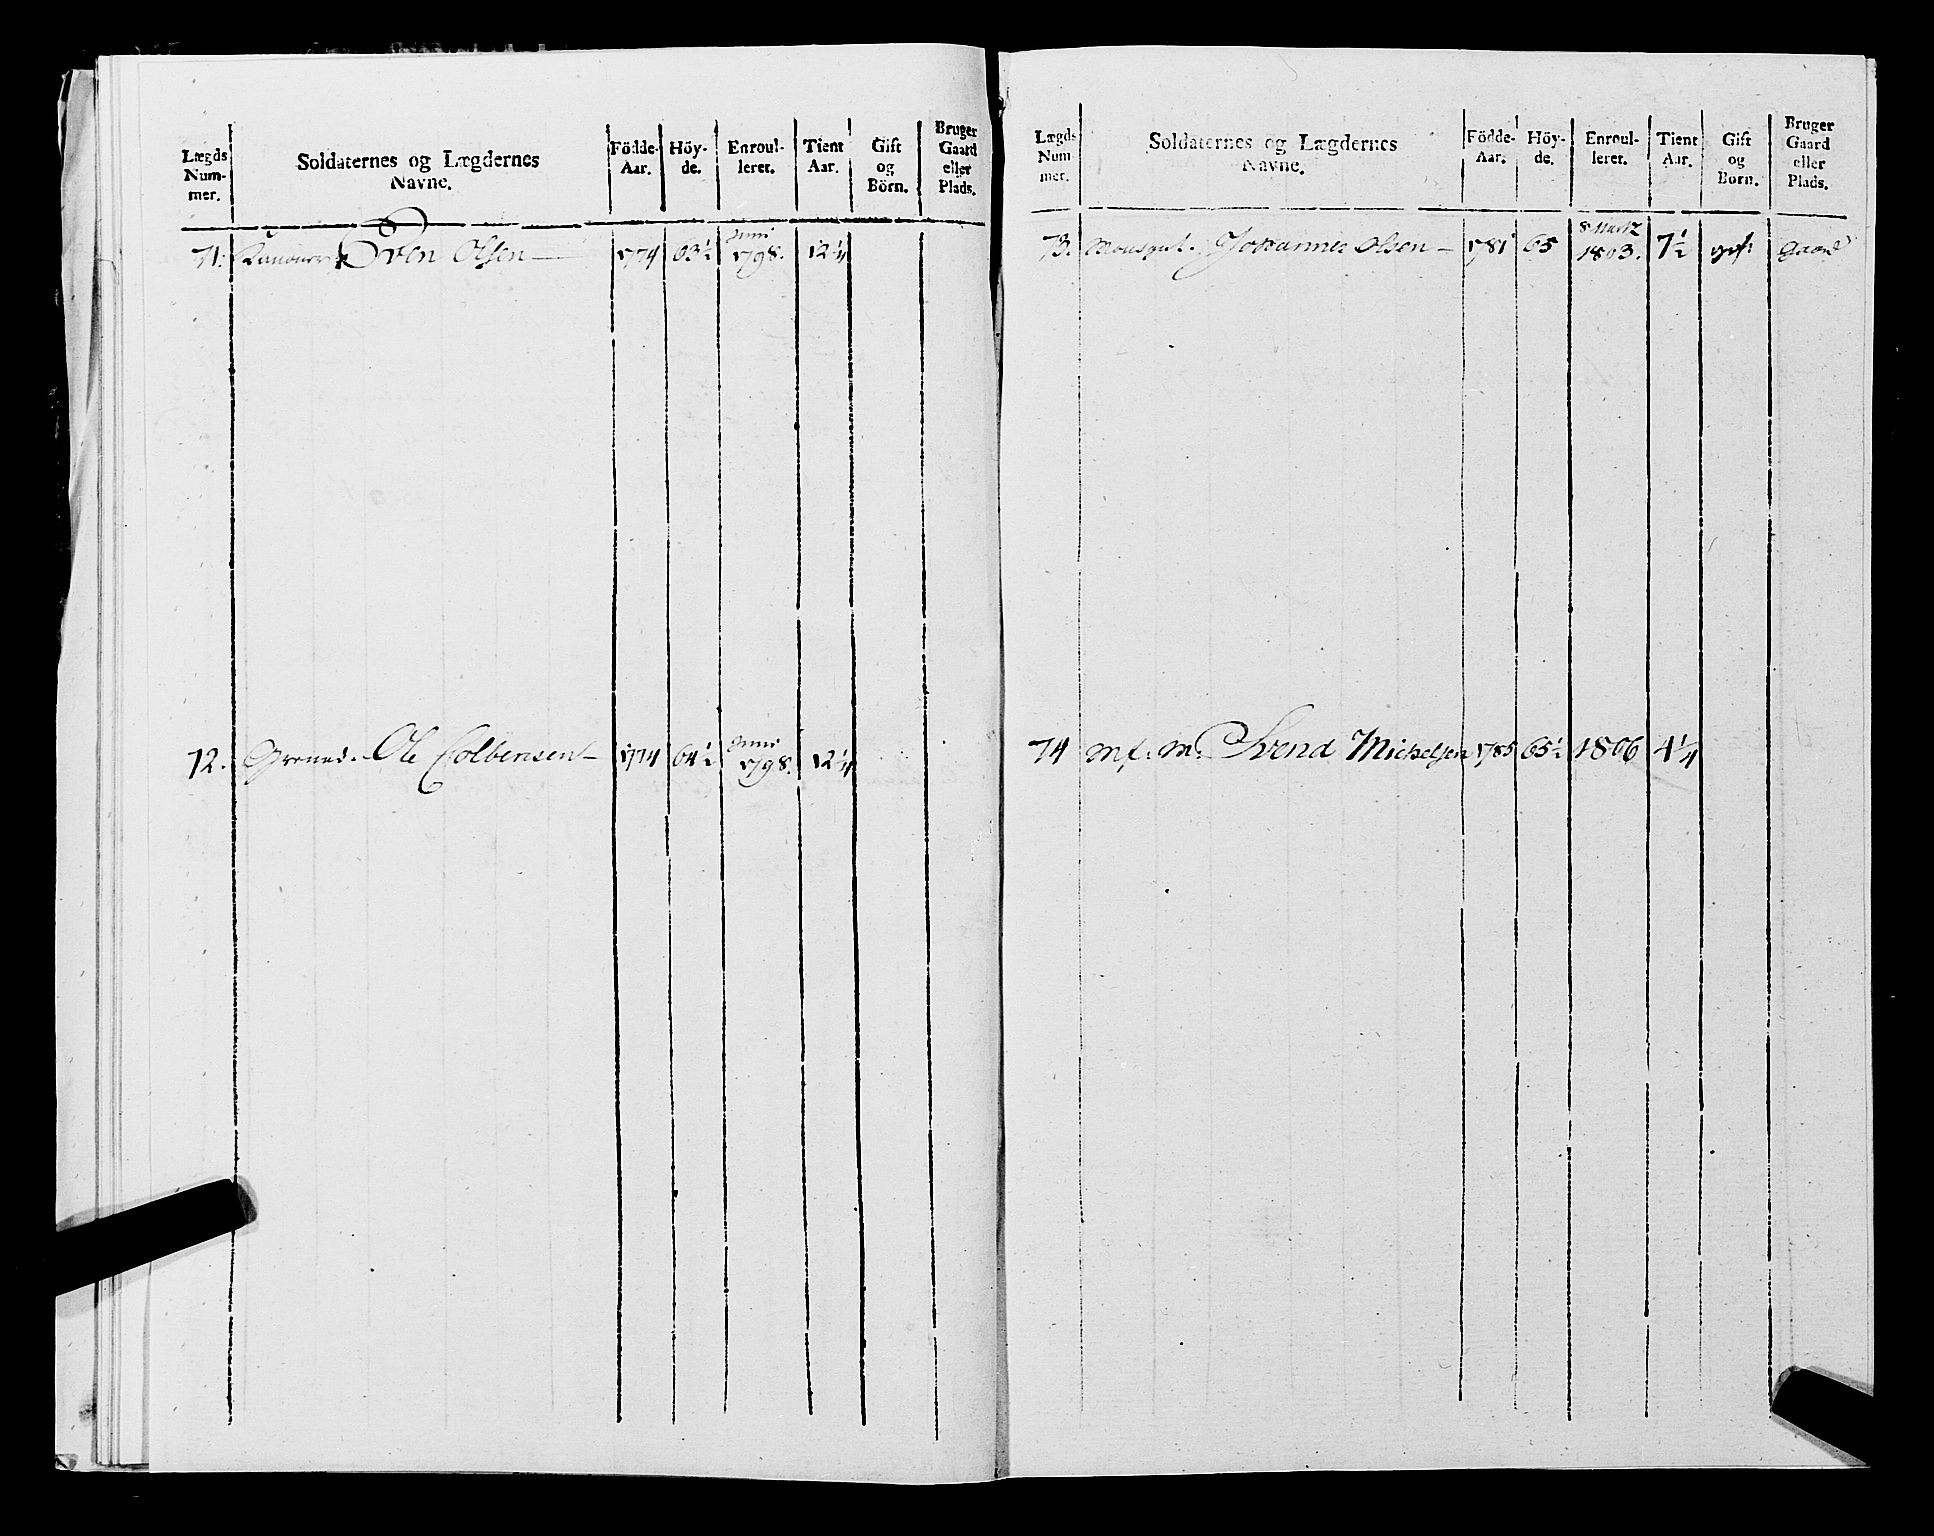 Lægds Num- mer. Soldaternes og Lægdernes Navne. Födde- Aar. Höy- de. Enroul- leret. Tient Aar. Gift og Börn. Bruger Gaard eller Plads.
71. Sven Olsen 1774 63½ Juni 1798. 12¼
72. Grenad. Ole Colbensen 1774 64½ Juni 1798. 12¼
Lægds Num- mer. Soldaternes og Lægdernes Navne. Födde- Aar. Höy- de. Enroul- leret. Tient Aar. Gift og Börn. Bruger Gaard eller Plads.
73. Mousqut. Johannes Olsen 1781 65 8 Martz 1803. 7½ gift Gaard
74 Svend Michelsen 1785 65½ 1806 4¼